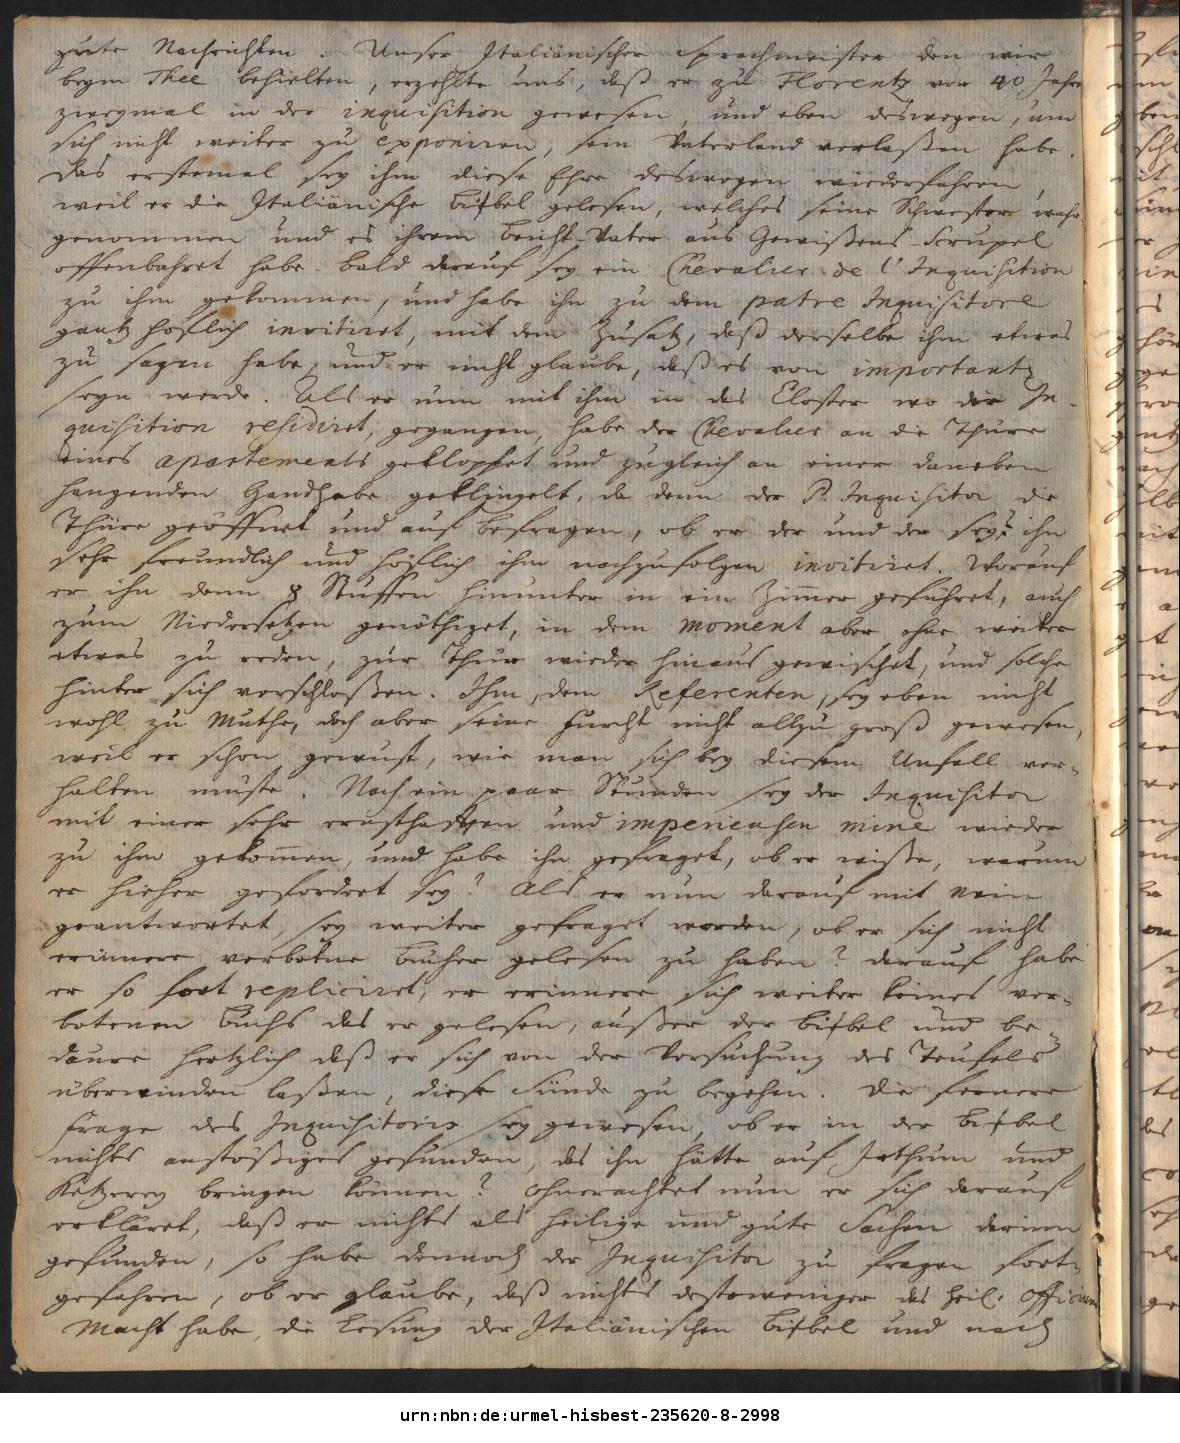 gute Nachrichten. Unser Italiänischer Sprachmeister den wir
beym Thee behielten, erzehlte uns, daß er zu Florentz vor 40 Jahre
zweymal in der inquisition gewesen, und eben deswegen, um
sich nicht weiter zu exponiren, sein Vaterland verlaßen habe.
Das erstemal sey ihm diese Ehre deswegen wiederfahren,
weil er die Italiänische Bibel gelesen, welches seine Schwester wahr
genommen und es ihrem Beicht-Vater aus Gewißens-Scrupel
offenbahret habe. Bald darauf sey ein Chevalier de l'Inquisition
zu ihm gekommen, und habe ihn zu dem patre Inquisitore
gantz höflich invitiret, mit dem Zusatz, daß derselbe ihm etwas
zu sagen habe, und er nicht glaube, daß es von importantz
seyn werde. Als er nun mit ihm in das Closter wo die In-
quisition residiret, gegangen, habe der Chevalier an die Thüre
eines apartements geklopfet und zugleich an einer daneben
hangenden Handhabe geklingelt, da denn der P. Inquisitor die
Thüre geöffnet und auf Befragen, ob er der und der sey? ihn
sehr freundlich und höflich ihm nachzufolgen invitiret. Worauf
er ihn denn 8 Stuffen hinunter in ein Zimmer geführet, auch
zum Niedersetzen genöthiget, in dem moment aber ohne weiter
etwas zu reden, zur Thür wieder hinaus gewischet, und solche
hinter sich verschloßen. Ihm, dem Referenten, sey eben nicht
wohl zu Muthe, doch aber seine Furcht nicht allzu groß gewesen,
weil er schon gewust, wie man sich bey diesem Unfall ver-
halten müste. Nach ein paar Stunden sey der Inquisitor
mit einer sehr ernsthafften und imperieusen mine wieder
zu ihm gekommen, und habe ihn gefraget, ob er wiße, warum
er hieher gefordert sey? Als er nun darauf mit nein
geantwortet, sey weiter gefraget worden, ob er sich nicht
erinnere verbotne Bücher gelesen zu haben? Darauf habe
er so fort repliciret, er erinnere sich weiter keines ver-
botenen Buchs das er gelesen, außer der Bibel und be-
daure hertzlich daß er sich von der Versuchung des Teufels
überwinden laßen, diese Sünde zu begehen. Die fernere
Frage des Inquisitoris sey gewesen, ob er in der Bibel
nichts anstößiges gefunden, das ihn hätte auf Irthum und
Ketzerey bringen können? Ohnerachtet nun er sich darauf
erkläret, daß er nichts als heilige und gute Sachen darinn
gefunden, so habe dennoch der Inquisitor zu fragen fort-
gefahren, ob er glaube, daß nichts destoweniger das heil. Officium
Macht habe, die Lesung der Italiänischen Bibel und nach
urn:nbn:de:urmel-hisbest-235620-8-2998